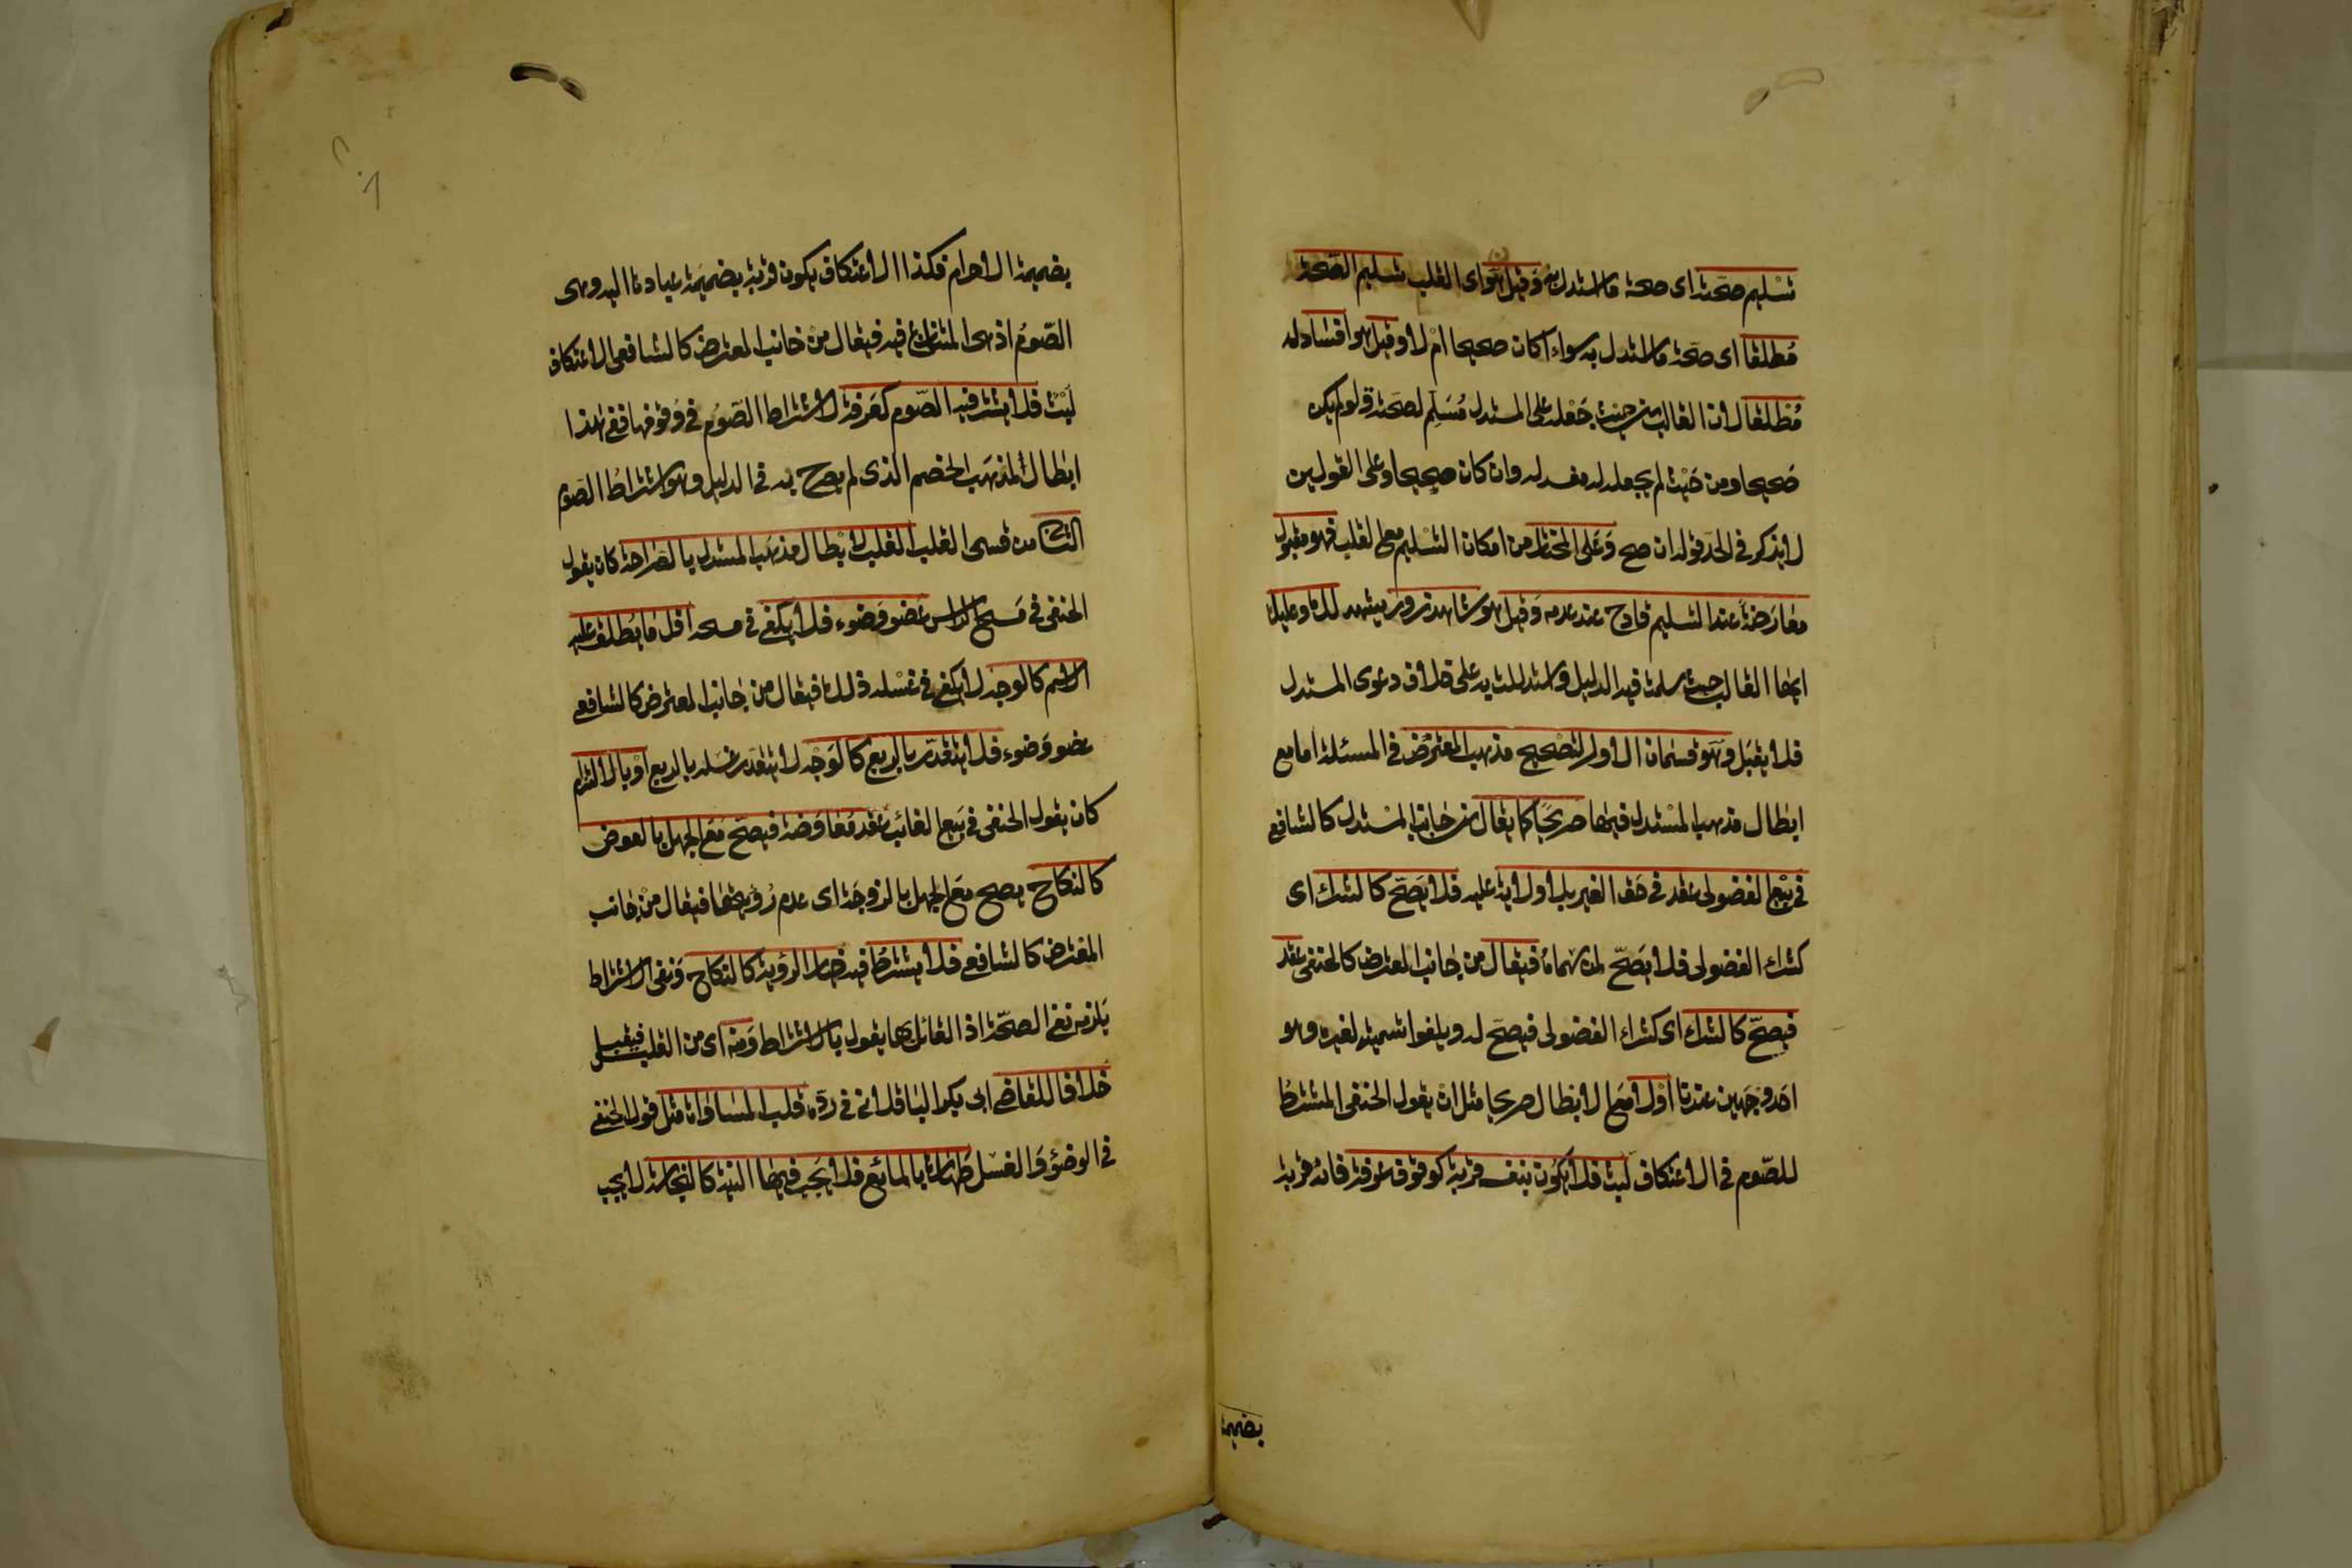 تسليم صحته اى صحة ما استدل به وقيل هو اى القلب تسليم الصحة
مطلقا اى صحة ما استدل به سواء اكان صحيحا ام لا وقيل هو افساد له
مطلقا لان القالب من حيث جعله على المستدل مسلم لصحته وان لم يكن
صحيحا ومن حيث لم يجعله له مفسد له وان كان صحيحا وعلى القولين
لا يذكر فى الحد قوله ان صح وعلى المختار من امكان التسليم مع القلب فهو مقبول
معارضة عند التسليم قادح عند عدمه وقيل هو شاهد زور يشهد لك وعليك
ايها القالب حيث سلمت فيه الدليل واستدللت به على خلاف دعوى المستدل
فلا يقبل وهو قسمان الاول لتصحيح مذهب المعترض فى المسئلة اما مع
ابطال مذهب المستدل فيها صريحا كما يقال من جانب المستدل كالشافعى
فى بيع الفضولى عقد فى حق الغير بلا ولاية عليه فلا يصح كالشراء اى
كشراء الفضولى فلا يصح لمن سماه فيقال من جانب المعترض كالحنفى عقد
فيصح كالشراء اى كشراء الفضولى فيصح له ويلغوا تسميته لغيره وهو
احد وجهين عندنا اولا مع الابطال صريحا مثل ان يقول الحنفى المشترط
للصوم فى الاعتكاف لبث فلا يكون بنفسه قربة كوقوف عرفة فانه قربة
بضميمة
بضميمة الاحرام فكذا الاعتكاف يكون قربة بضميمة عبادة اليه وهى
الصوم اذ هى المتنازع فيه فيقال من جانب المعترض كالشافعى الاعتكاف
لبث فلا يشترط فيه الصوم كعرفة لا يشترط الصوم فى وقوفها ففى هذا
ابطال لمذهب الخصم الذى لم يصرح به فى الدليل وهو اشتراط الصوم
الثانى من قسمى القلب القلب لابطال مذهب المستدل بالصراحة كان يقول
الحنفى فى مسح الراس عضو وضوء فلا يكفى فى مسحه اقل ما يطلق عليه
الاسم كالوجه لا يكفى فى غسله ذلك فيقال من جانب المعترض كالشافعى
عضو وضوء فلا يتقدر بالربع كالوجه لا يتقدر غسله بالربع او بالالتزام
كان يقول الحنفى فى بيع الغائب عقد معاوضة فيصح مع الجهل بالعوض
كالنكاح يصح مع الجهل بالزوجة اى عدم رؤيتها فيقال من جانب
المعترض كالشافعى فلا يشترط فيه خيار الرؤية كالنكاح ونفى الاشتراط
يلزمه نفى الصحة اذ القائل بها يقول بالاشتراط ومنه اى من القلب فيقبل
خلافا للقاضى ابى بكر الباقلانى فى رده قلب المساواة مثل قول الحنفى
فى الوضؤ والغسل طهارة بالمائع فلا يجب فيها النية كالنجاسة لا يجب